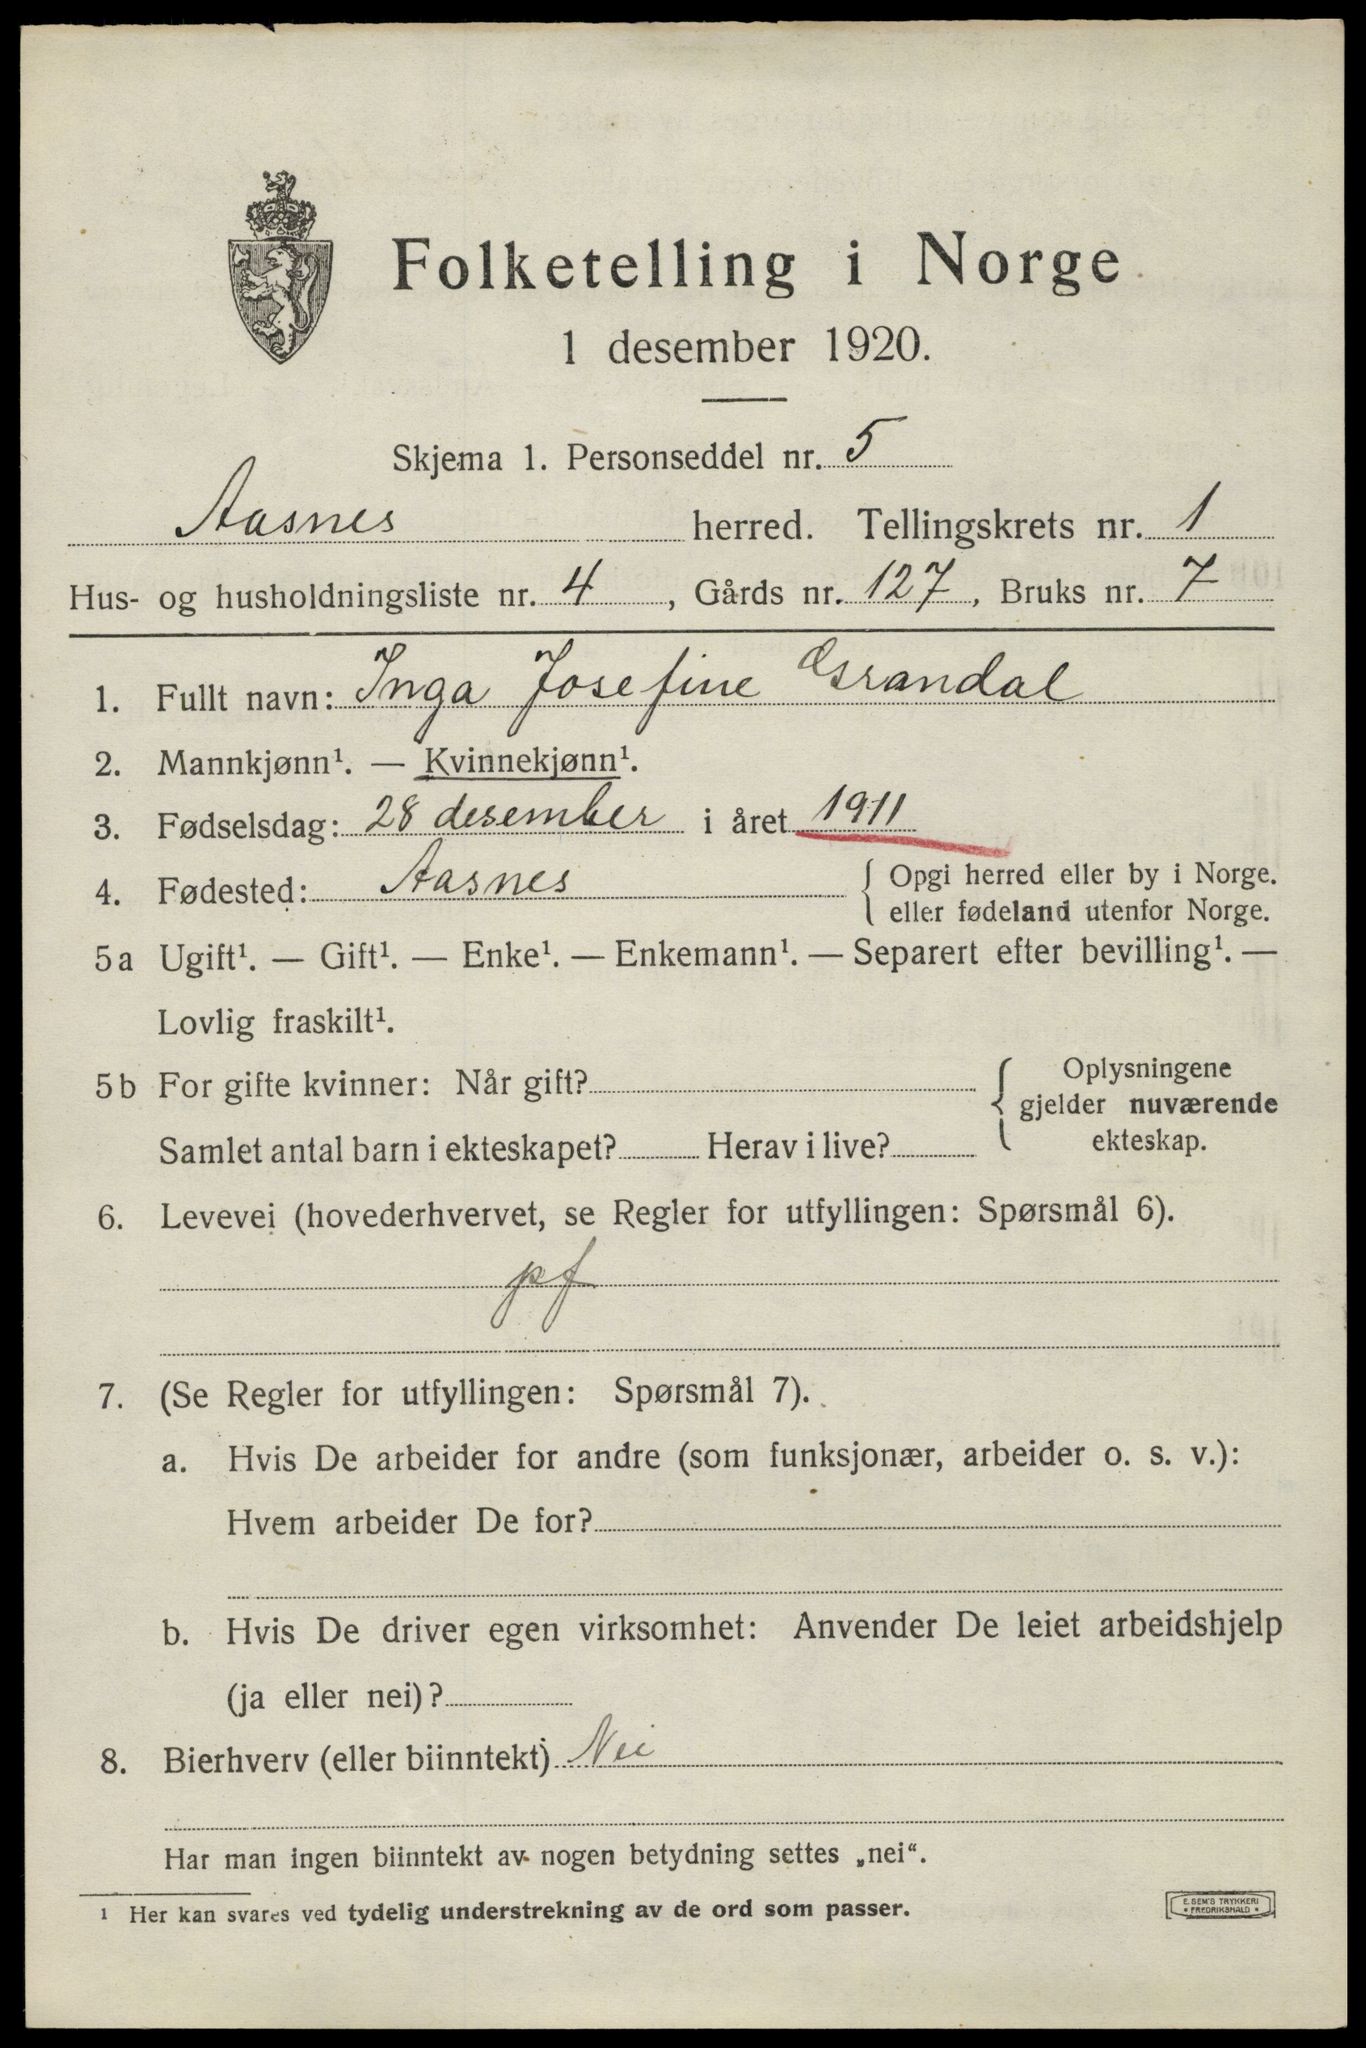 Folketelling i Norge
1 desember 1920.
Skjema 1. Personseddel nr. 5
Aasnes herred. Tellingskrets nr. 1
Hus- og husholdningsliste nr. 4, Gårds nr. 127, Bruks nr. 7
1. Fullt navn: Inga Josefine Grandal
2. Mannkjønn¹. — Kvinnekjønn¹.
3. Fødselsdag: 28 desember i året 1911
4. Fødested: Aasnes { Opgi herred eller by i Norge.
eller fødeland utenfor Norge.
5a Ugift¹. — Gift¹. — Enke¹. — Enkemann¹. — Separert efter bevilling¹. —
Lovlig fraskilt¹.
5b For gifte kvinner: Når gift? { Oplysningene
gjelder nuværende
ekteskap.
Samlet antal barn i ekteskapet? Herav i live?
6. Levevei (hovederhvervet, se Regler for utfyllingen: Spørsmål 6).
pf
7. (Se Regler for utfyllingen: Spørsmål 7).
a. Hvis De arbeider for andre (som funksjonær, arbeider o. s. v.):
Hvem arbeider De for?
b. Hvis De driver egen virksomhet: Anvender De leiet arbeidshjelp
(ja eller nei)?
8. Bierhverv (eller biinntekt) Nei
Har man ingen biinntekt av nogen betydning settes „nei“.
¹ Her kan svares ved tydelig understrekning av de ord som passer.
E. SEM'S TRYKKERI
* FREDRIKSHALD *